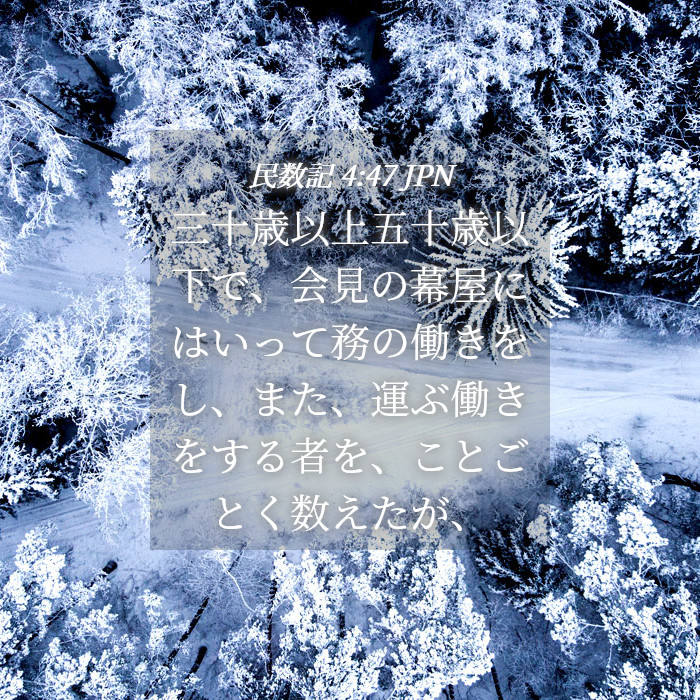 民数記 4:47 JPN
三十歳以上五十歳以
下で、会見の幕屋に
はいって務の働きを
し、また、運ぶ働き
をする者を、ことご
とく数えたが、